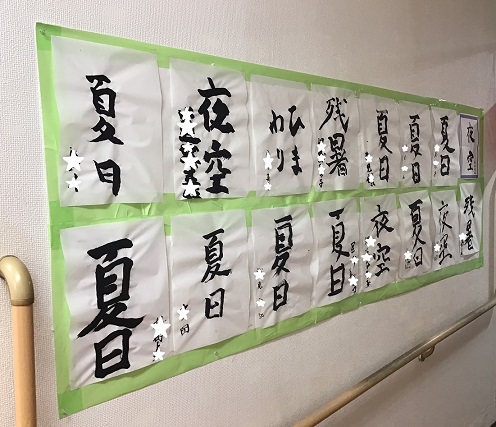 夏日
夜空
ひま
わり
残暑
夏日
夏日
夏日
夜空
夏日
夏日
夏日
夏日
夜空
夏日
夜空
残暑